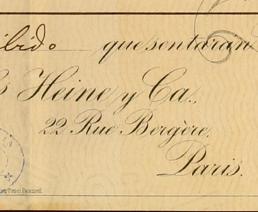 que sentaran
Heine y Ca.,
22 Rue Bergère,
Paris.